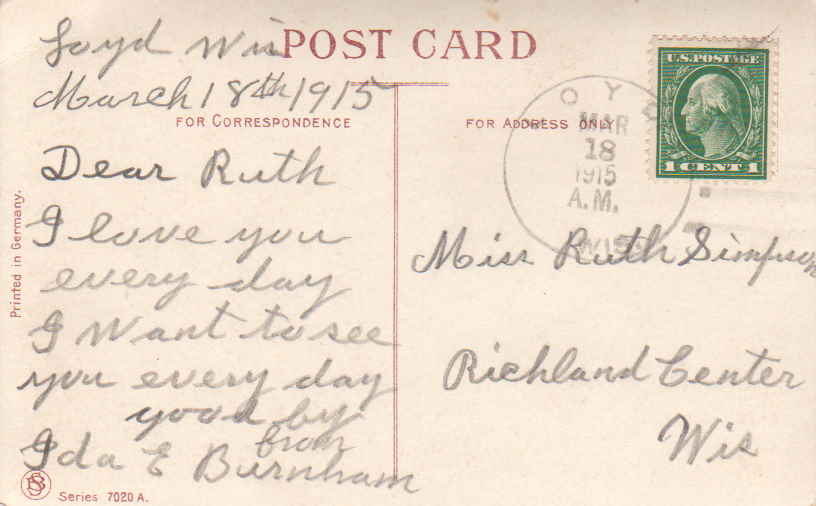 Loyd Wis
POST CARD
March 18th 1915
FOR CORRESPONDENCE
Dear Ruth
I love you
every day
I Want to see
you every day
good by
from
Ida E Burnham
Printed in Germany.
Series 7020 A.
FOR ADDRESS ONLY
U.S. POSTAGE
1 CENT 1
LOYD
MAR
18
1915
A.M.
WIS.
Miss Ruth Simpson
Richland Center
Wis